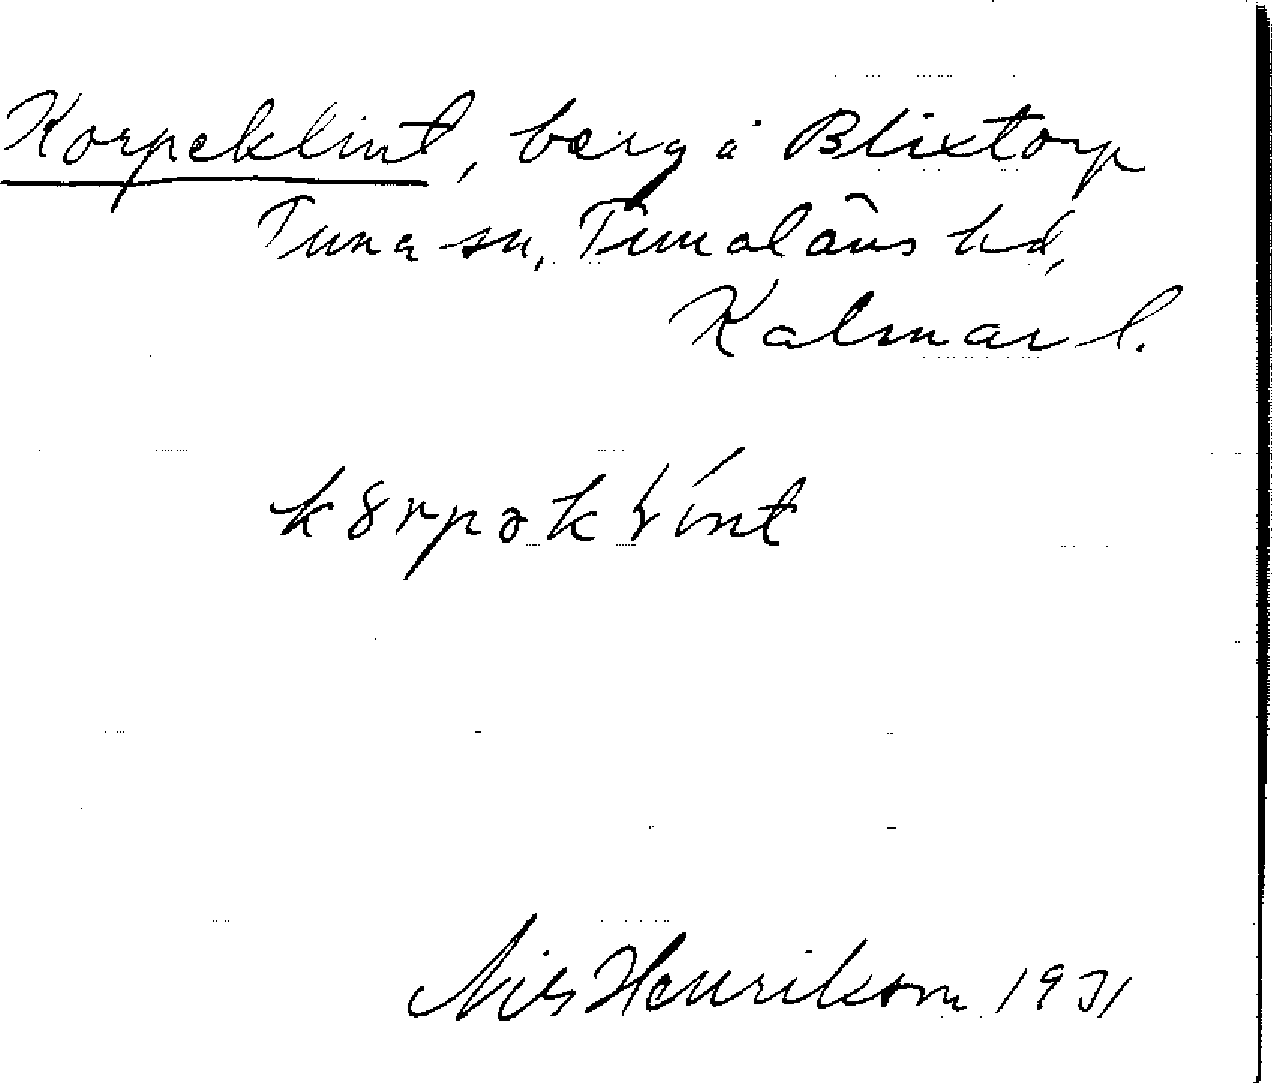 Korpeklint, berg å Blixtorp
Tuna sn, Tunaläns hd,
Kalmar l.
Nils Henrikson 1931